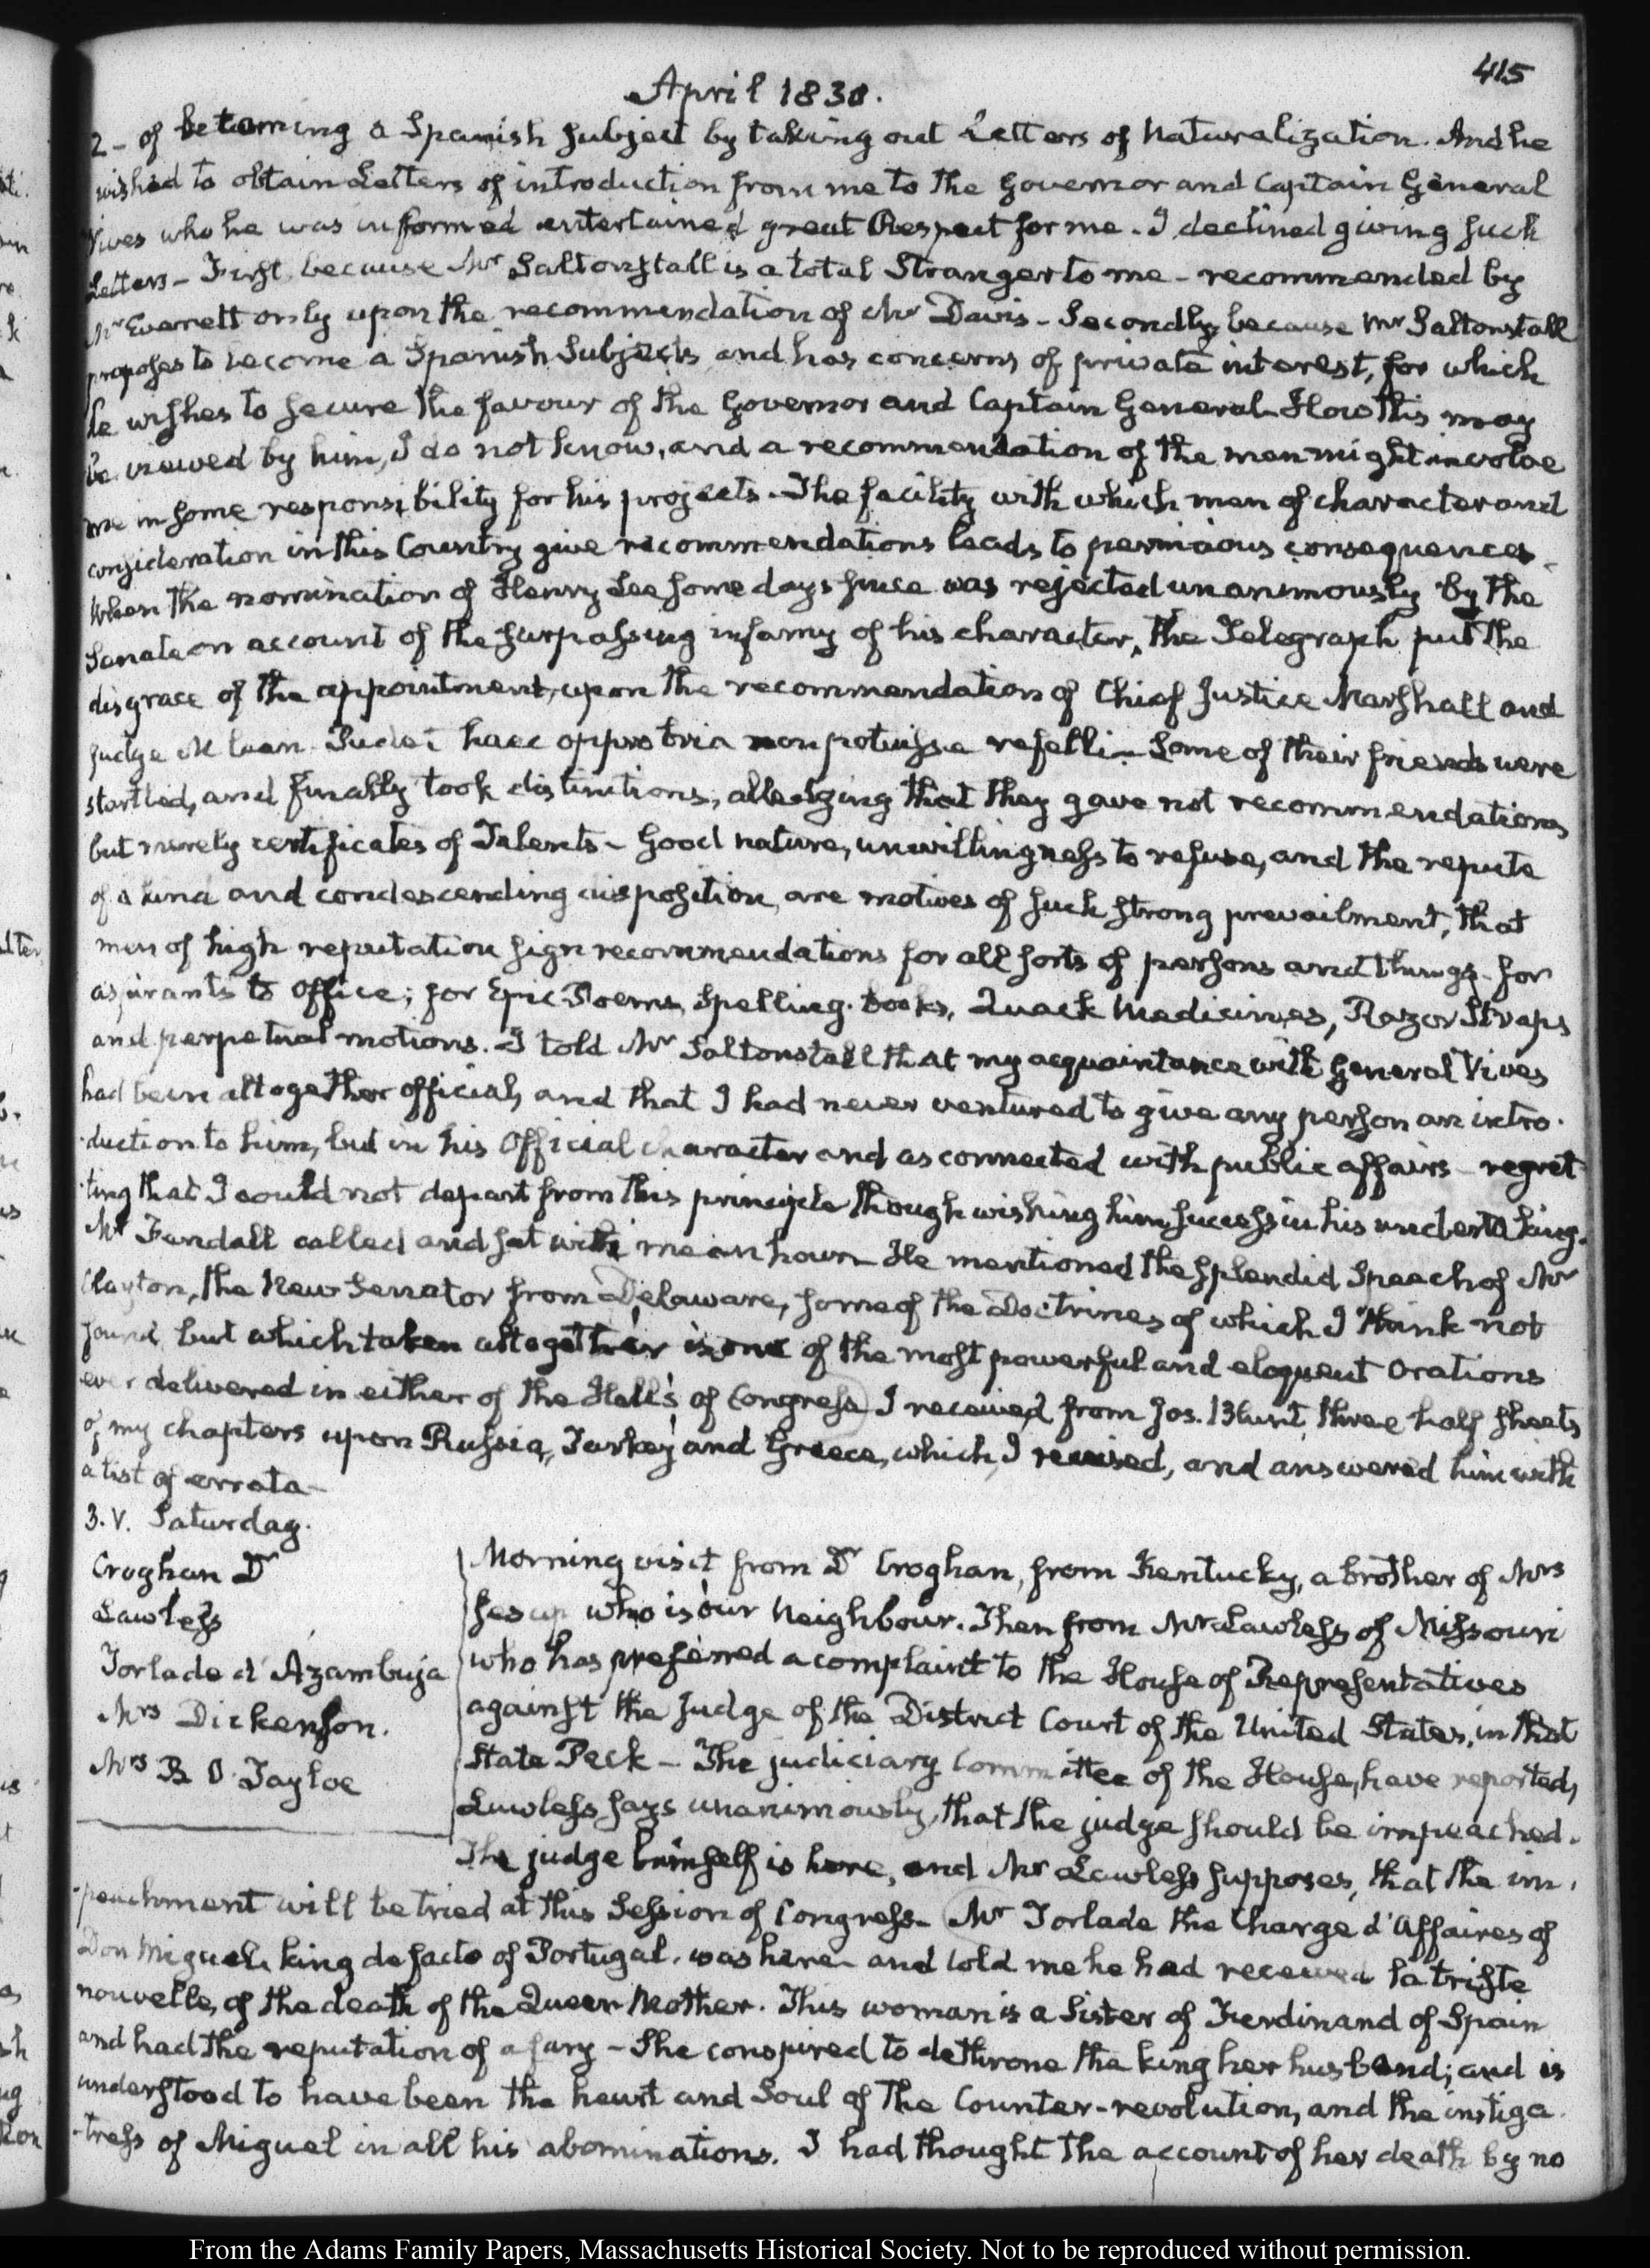 415
April 1830.
2 - of becoming a Spanish subject by taking out Letters of Naturalization. And he
wished to obtain Letters of introduction from me to the Governor and Captain General
Vives who he was informed entertained great Respect for me. I declined giving such
Letters - First because Mr Saltonstall is a total Stranger to me - recommended by
Mr Everett only upon the recommendation of Mr Davis - Secondly, because Mr Saltonstall
proposes to become a Spanish Subject, and has concerns of private interest, for which
he wishes to secure the favour of the Governor and Captain General. How this may
be viewed by him, I do not know, and a recommendation of the man might involve
me in some responsibility for his projects. The facility with which men of character and
consideration in this Country give recommendations leads to pernicious consequences.
When the nomination of Henry Lee some days since was rejected unanimously by the
Senate on account of the surpassing infamy of his character, the Telegraph put the
disgrace of the appointment, upon the recommendation of Chief Justice Marshall and
Judge McLean. Pudet haec opprobria non potuisse refelli - Some of their friends were
startled, and finally took distinctions, alledging that they gave not recommendations
but merely certificates of Talents - Good nature, unwillingness to refuse, and the repute
of a kind and condescending disposition, are motives of such strong prevailment, that
men of high reputation sign recommendations for all sorts of persons and things - for
aspirants to office; for Epic Poems, Spelling-books, Quack Medicines, Razor Straps
and perpetual motions. I told Mr Saltonstall that my acquaintance with General Vives
had been altogether official, and that I had never ventured to give any person an intro-
-duction to him, but in his Official character and as connected with public affairs - regret-
-ting that I could not depart from this principle though wishing him success in his undertaking.
Mr Fendall called and sat with me an hour - He mentioned the splendid Speech of Mr
Clayton, the New Senator from Delaware, some of the Doctrines of which I think not
sound but which taken altogether is one of the most powerful and eloquent Orations
ever delivered in either of the Halls of Congress. I received from Jos. Blunt three half sheets
of my chapters upon Russia, Turkey and Greece, which I revised, and answered him with
a list of errata -
3. V. Saturday.
Croghan Dr
Lawless
Torlade d'Azambuja
Mrs Dickenson.
Mrs B O Tayloe
Morning visit from Dr Croghan, from Kentucky, a brother of Mrs
Jesup who is our Neighbour. Then from Mr Lawless of Missouri
who has preferred a complaint to the House of Representatives
against the Judge of the District Court of the United States, in that
State Peck - The judiciary Committee of the House, have reported,
Lawless says unanimously, that the judge should be impeached.
The judge himself is here, and Mr Lawless supposes, that the im-
-peachment will be tried at this Session of Congress - Mr Torlade the Charge d'Affaires of
Don Miguel, king de facto of Portugal, was here - and told me he had received la triste
nouvelle, of the death of the Queen Mother. This woman is a Sister of Ferdinand of Spain
and had the reputation of a fury - She conspired to dethrone the king her husband; and is
understood to have been the heart and Soul of the Counter-revolution, and the instiga-
-tress of Miguel in all his abominations. I had thought the account of her death by no
From the Adams Family Papers, Massachusetts Historical Society. Not to be reproduced without permission.